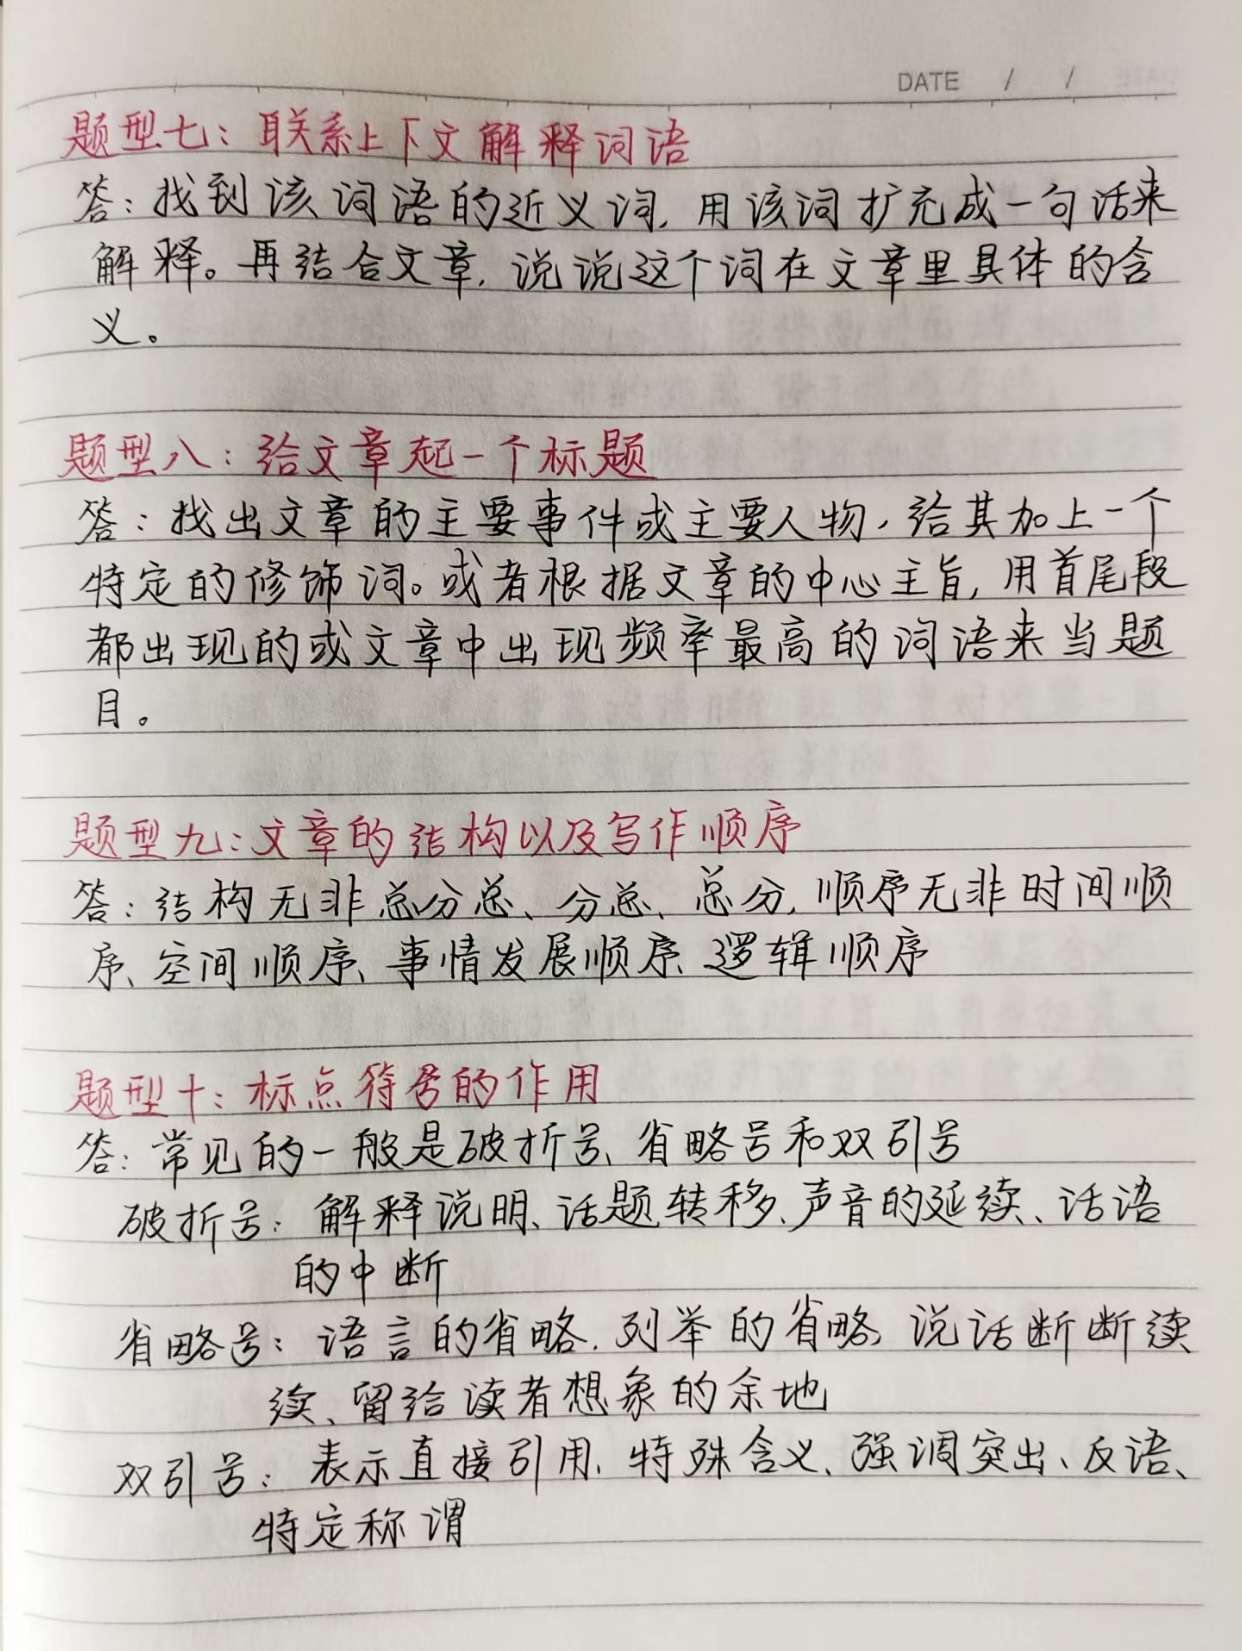 DATE / /
题型七：联系上下文解释词语
答：找到该词语的近义词，用该词扩充成一句话来
解释。再结合文章，说说这个词在文章里具体的含
义。
题型八：给文章起一个标题
答：找出文章的主要事件或主要人物，给其加上一个
特定的修饰词。或者根据文章的中心主旨，用首尾段
都出现的或文章中出现频率最高的词语来当题
目。
题型九：文章的结构以及写作顺序
答：结构无非总分总、分总、总分，顺序无非时间顺
序、空间顺序、事情发展顺序、逻辑顺序
题型十：标点符号的作用
答：常见的一般是破折号、省略号和双引号
破折号：解释说明、话题转移、声音的延续、话语
的中断
省略号：语言的省略、列举的省略、说话断断续
续、留给读者想象的余地
双引号：表示直接引用、特殊含义、强调突出、反语、
特定称谓